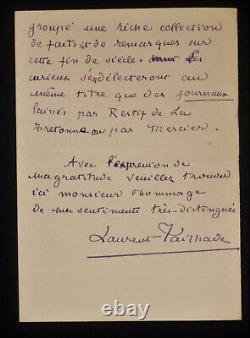 groupé une riche collection
de faits et de remarques sur
cette fin de siècle. Les
curieux s'y délecteront au
même titre que des journaux
laissés par Restif de La
Bretonne ou par Mercier.
Avec l'expression de
ma gratitude veuillez trouver
ici monsieur l'hommage
de mes sentiments très-distingués
Laurent Tailhade